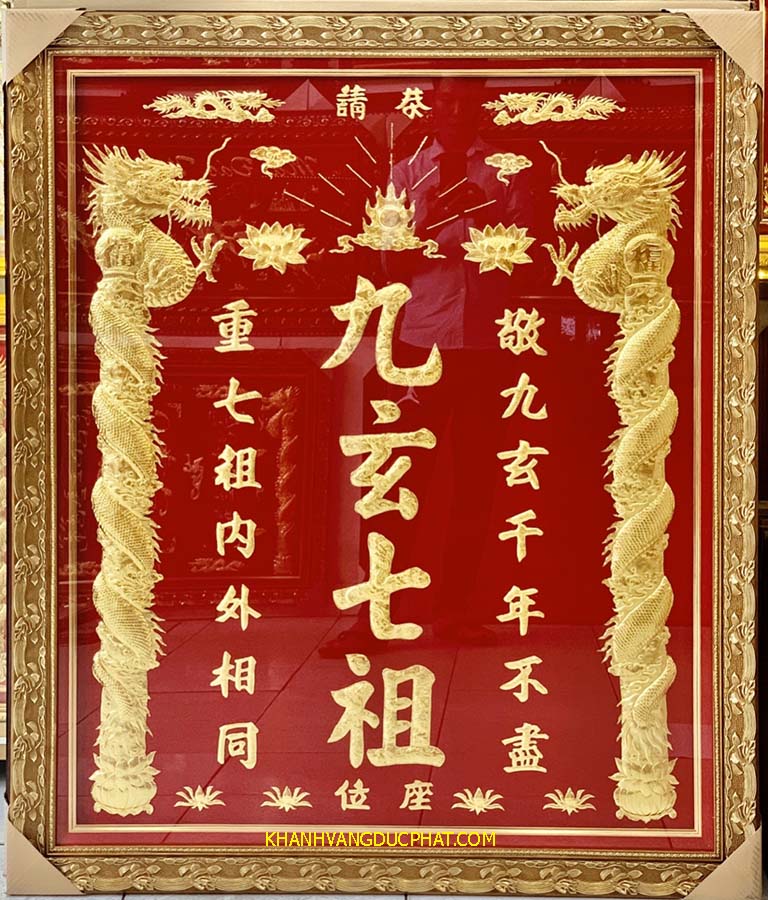 恭請
敬九玄千年不盡
九玄七祖
重七祖内外相同
座位
福
福
KHANHVANGDUCPHAT.COM